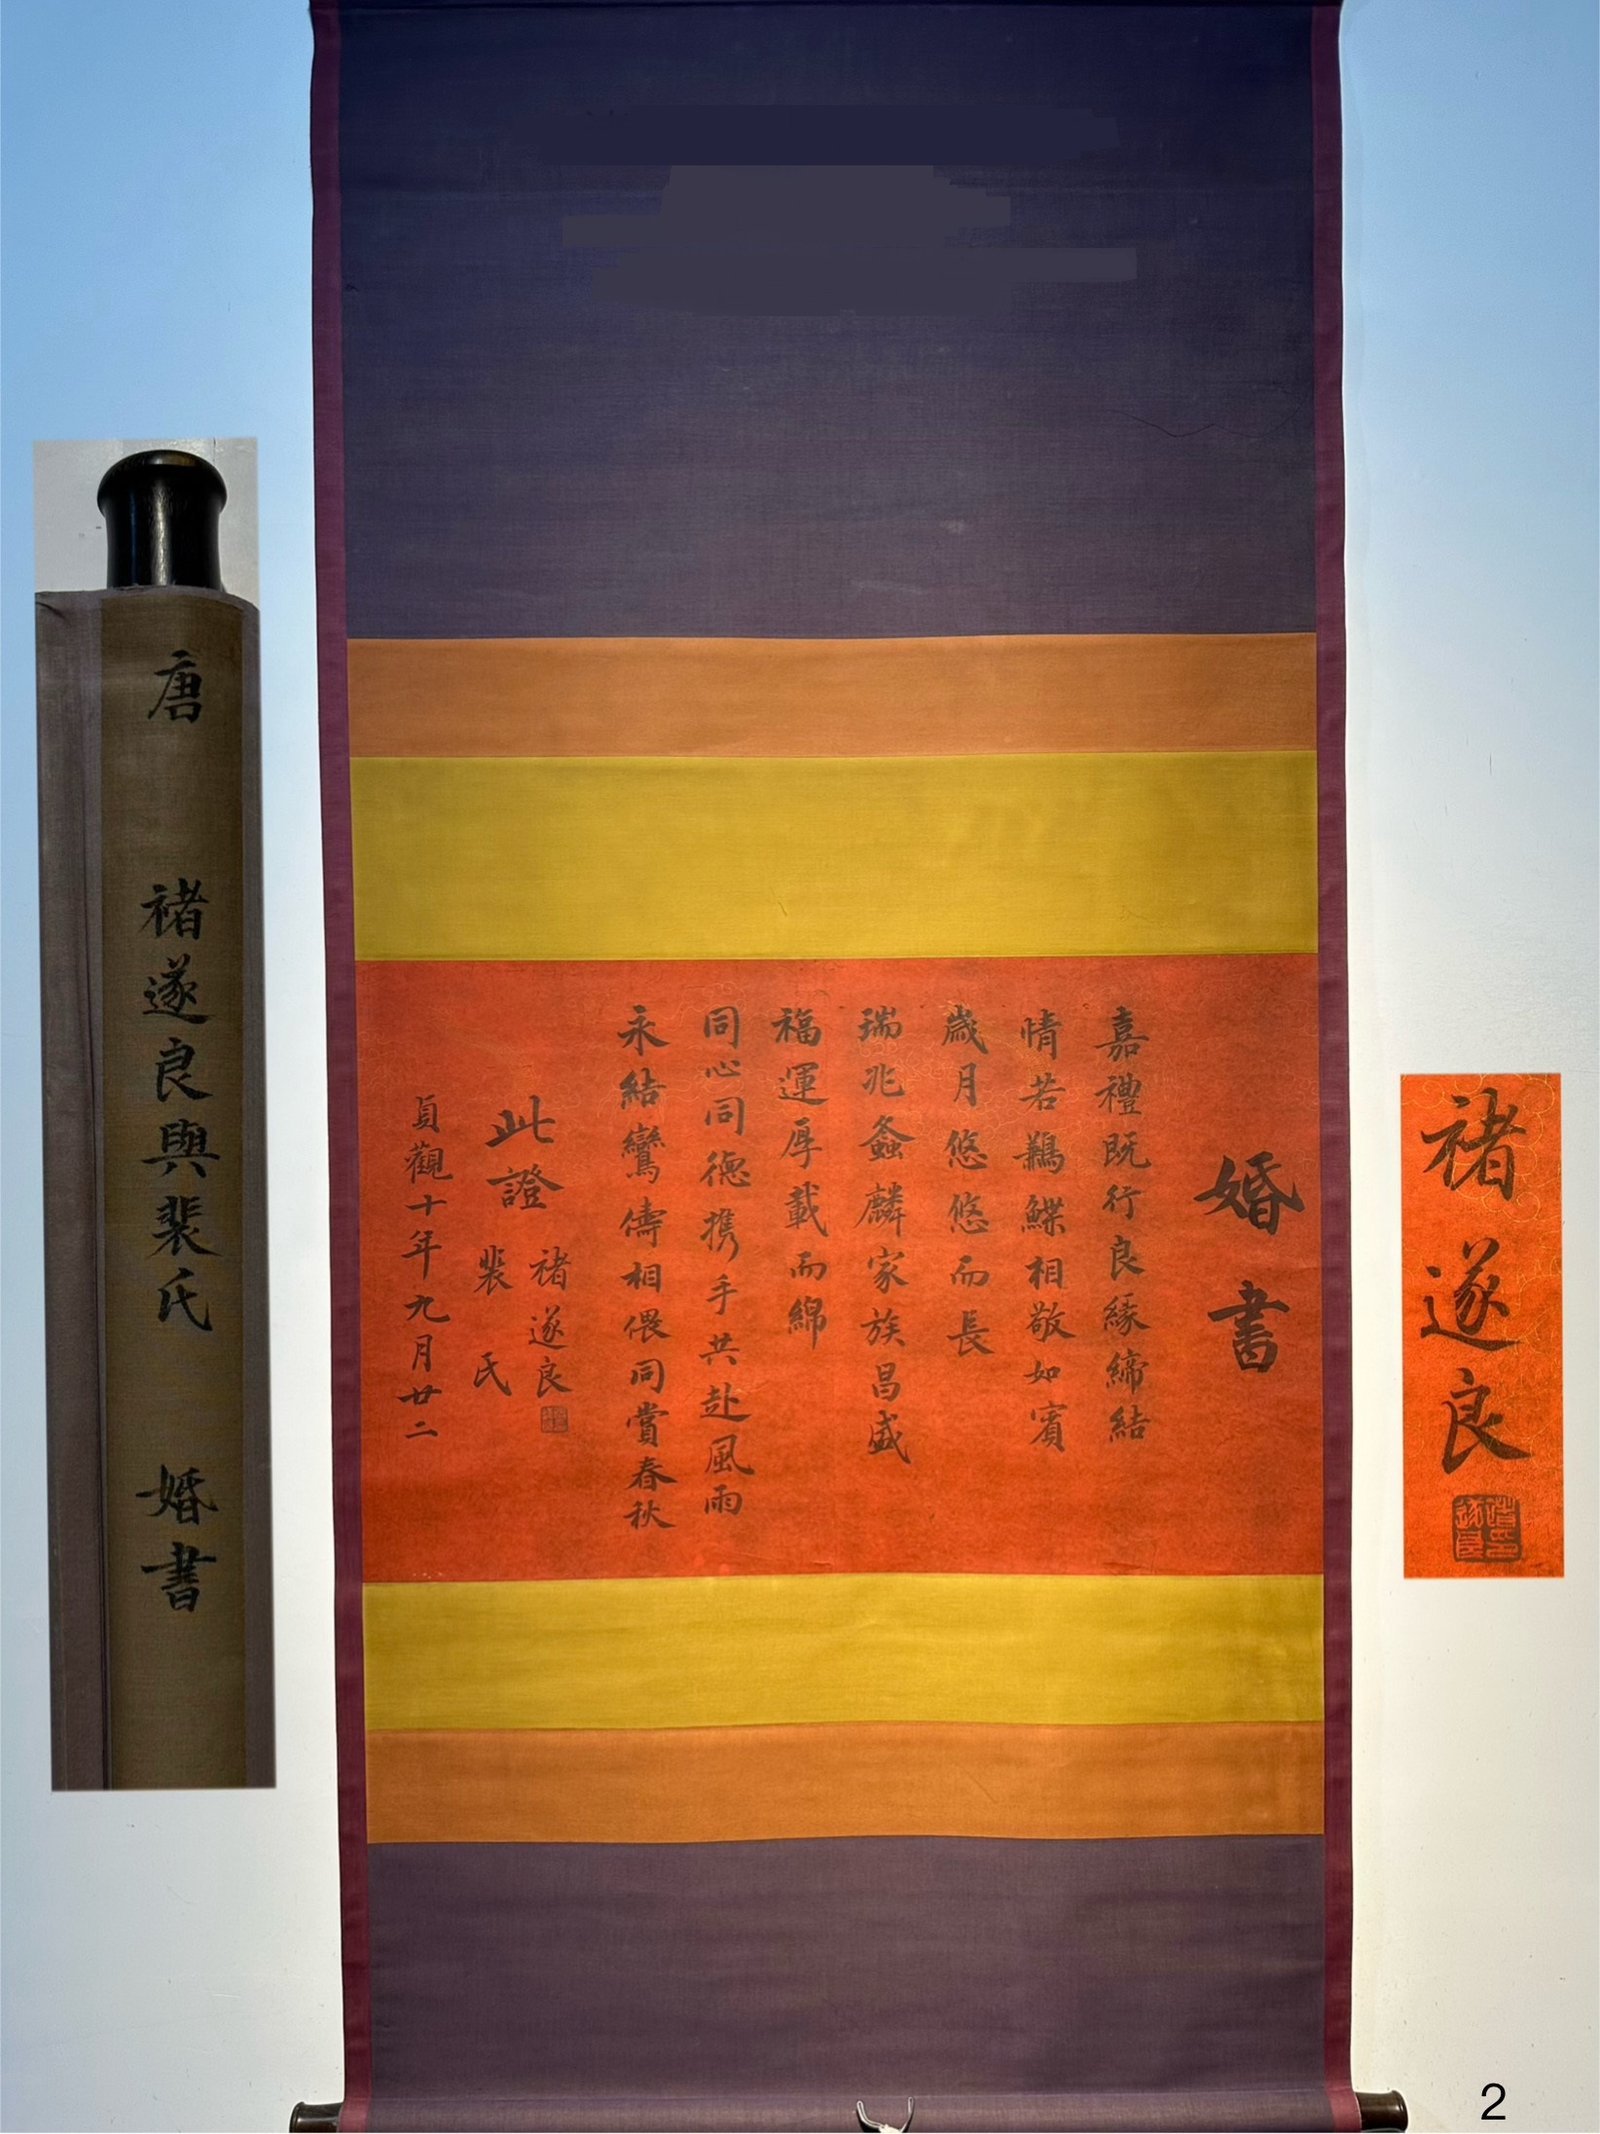 唐 褚遂良與裴氏 婚書
婚書
嘉禮既行良緣締結
情若鶼鰈相敬如賓
歲月悠悠而長
瑞兆螽麟家族昌盛
福運厚載而綿
同心同德攜手共赴風雨
永結鸞儔相偎同賞春秋
此證
褚遂良
裴氏
貞觀十年九月廿二
褚遂良
2